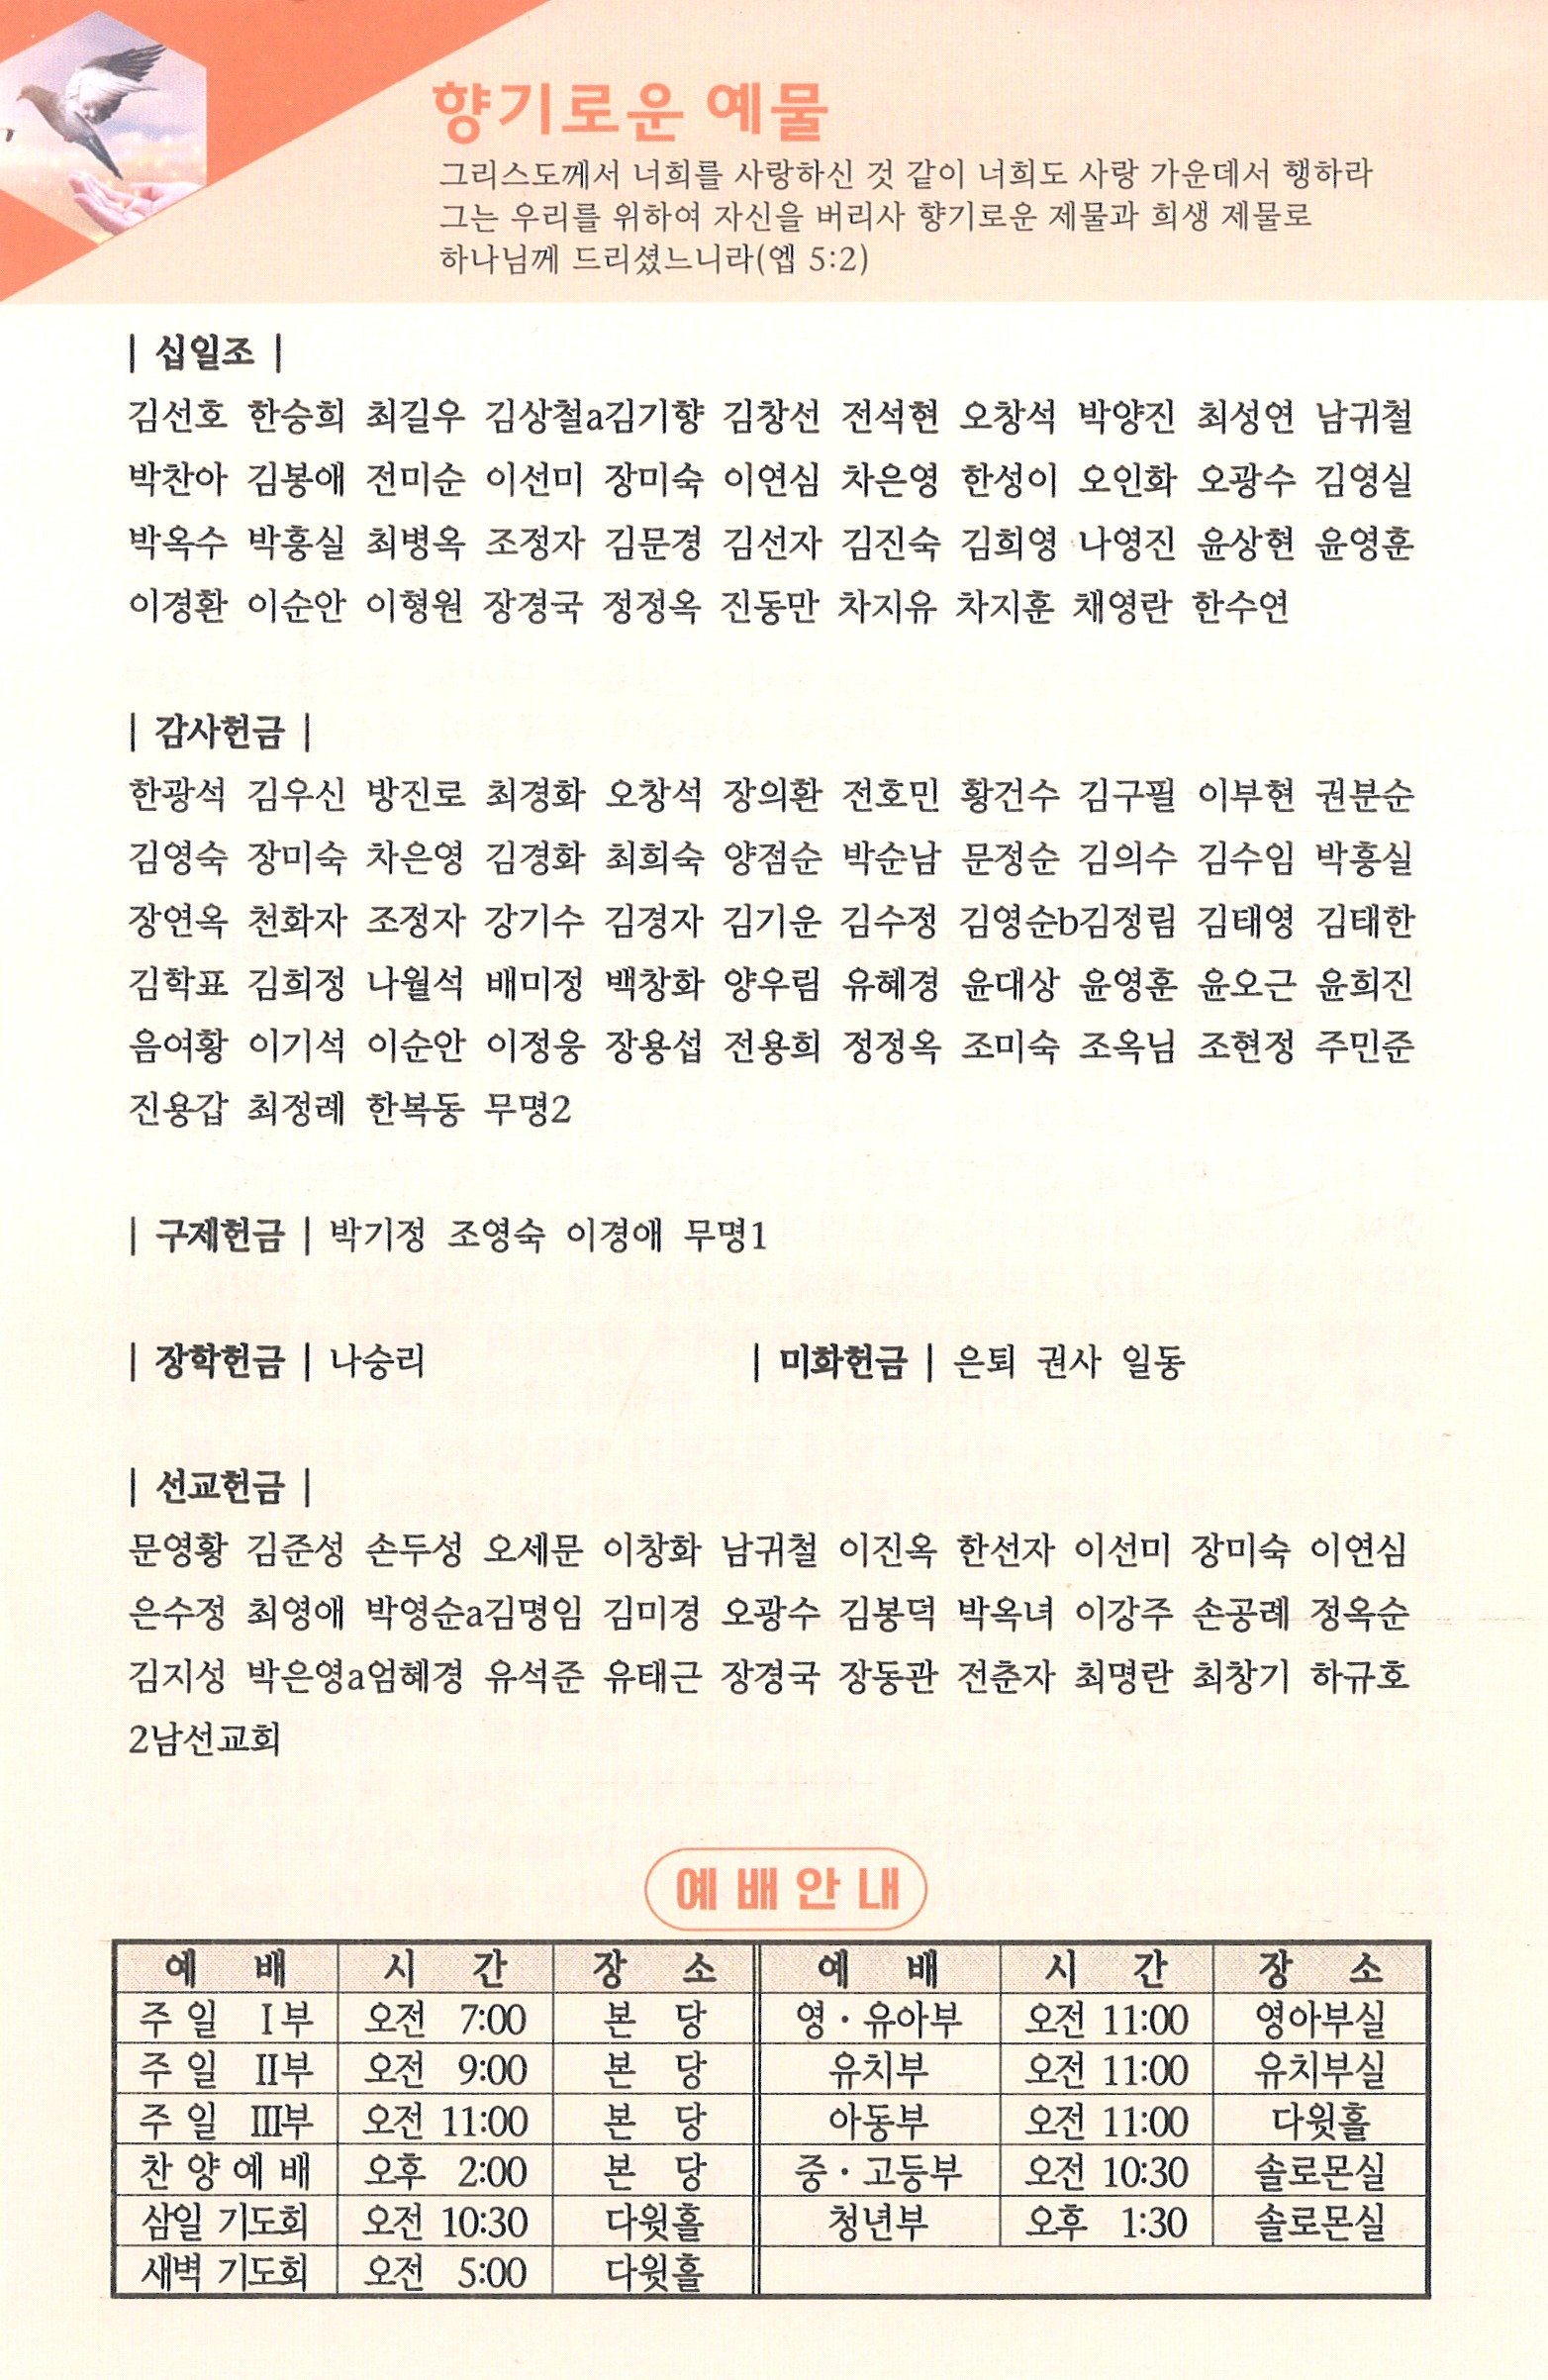 향기로운 예물
그리스도께서 너희를 사랑하신 것 같이 너희도 사랑 가운데서 행하라
그는 우리를 위하여 자신을 버리사 향기로운 제물과 희생 제물로
하나님께 드리셨느니라(엡 5:2)
| 십일조 |
김선호 한승희 최길우 김상철a김기향 김창선 전석현 오창석 박양진 최성연 남귀철
박찬아 김봉애 전미순 이선미 장미숙 이연심 차은영 한성이 오인화 오광수 김영실
박옥수 박흥실 최병옥 조정자 김문경 김선자 김진숙 김희영 나영진 윤상현 윤영훈
이경환 이순안 이형원 장경국 정정옥 진동만 차지유 차지훈 채영란 한수연
| 감사헌금 |
한광석 김우신 방진로 최경화 오창석 장의환 전호민 황건수 김구필 이부현 권분순
김영숙 장미숙 차은영 김경화 최희숙 양점순 박순남 문정순 김의수 김수임 박흥실
장연옥 천화자 조정자 강기수 김경자 김기운 김수정 김영순b김정림 김태영 김태한
김학표 김희정 나월석 배미정 백창화 양우림 유혜경 윤대상 윤영훈 윤오근 윤희진
음여황 이기석 이순안 이정웅 장용섭 전용희 정정옥 조미숙 조옥님 조현정 주민준
진용갑 최정례 한복동 무명2
| 구제헌금 | 박기정 조영숙 이경애 무명1
| 장학헌금 | 나승리 | 미화헌금 | 은퇴 권사 일동
| 선교헌금 |
문영황 김준성 손두성 오세문 이창화 남귀철 이진옥 한선자 이선미 장미숙 이연심
은수정 최영애 박영순a김명임 김미경 오광수 김봉덕 박옥녀 이강주 손공례 정옥순
김지성 박은영a엄혜경 유석준 유태근 장경국 장동관 전춘자 최명란 최창기 하규호
2남선교회
예배안내
예 배 시 간 장 소 예 배 시 간 장 소
주 일 Ⅰ부 오전 7:00 본 당 영·유아부 오전 11:00 영아부실
주 일 Ⅱ부 오전 9:00 본 당 유치부 오전 11:00 유치부실
주 일 Ⅲ부 오전 11:00 본 당 아동부 오전 11:00 다윗홀
찬 양 예 배 오후 2:00 본 당 중·고등부 오전 10:30 솔로몬실
삼일 기도회 오전 10:30 다윗홀 청년부 오후 1:30 솔로몬실
새벽 기도회 오전 5:00 다윗홀